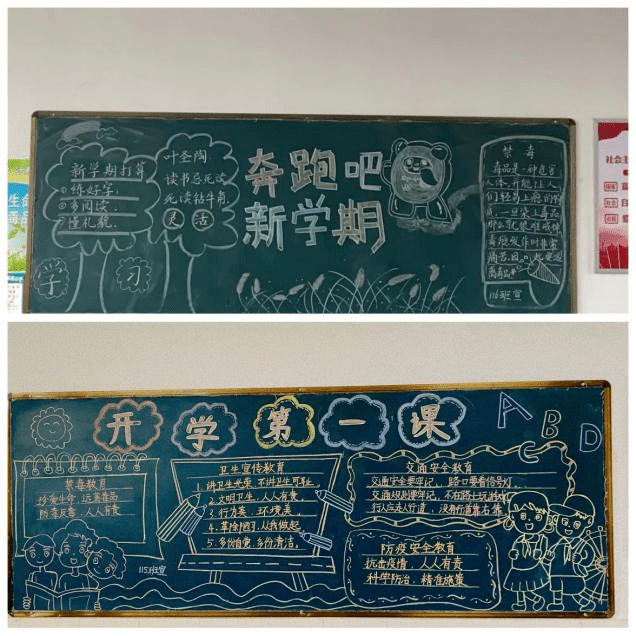 新学期打算
①练好字.
②多阅读.
③懂礼貌.
学习
叶圣陶
读书忌死读
死读钻牛角.
灵活
奔跑吧
新学期
禁毒
毒品是一种危害
人体,并能让人
们轻易上瘾的物
质,一旦染上毒品
那么就很难戒掉
毒瘾发作时非常
痛苦,因
116班宣
社会主
开学第一课
A B C D
禁毒教育
珍爱生命,远离毒品
防毒反毒,人人有责
卫生宣传教育
1.讲卫生光荣,不讲卫生可耻。
2.文明卫生,人人有责
3.行为美,环境美。
4.革除陋习,从我做起
5.多份自觉,多份清洁。
115班宣
交通安全教育
交通安全要牢记,路口要看信号灯
交通规则要牢记,不在路上玩游戏
行人应走人行道,没有行道靠右靠
防疫安全教育
抗击疫情,人人有责
科学防治,精准施策